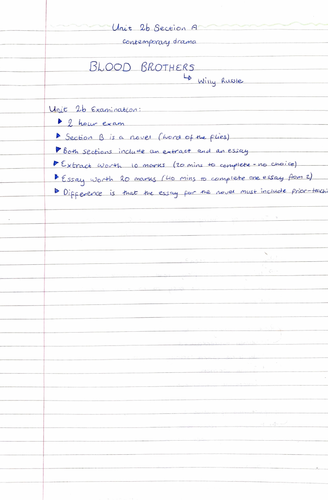 Unit 2b Section A
Contemporary drama
BLOOD BROTHERS
↳ Willy Russle
Unit 2b Examination:
▶ 2 hour exam
▶ Section B is a novel (Lord of the flies)
▶ Both sections include an extract and an essay
▶ Extract worth 10 marks (20 mins to complete - no choice)
▶ Essay worth 20 marks (40 mins to complete one essay from 2)
▶ Difference is that the essay for the novel must include